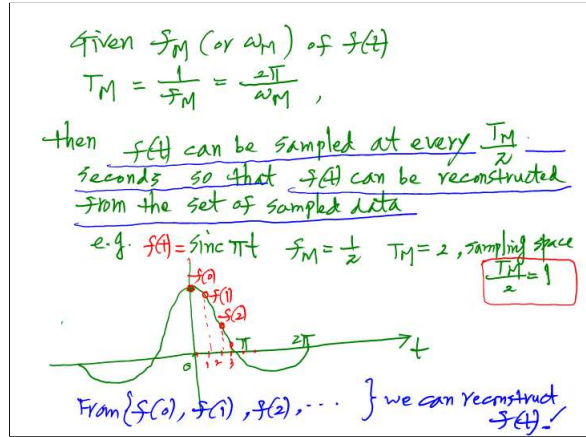 Given fM (or ωM) of f(t)
TM = 1/fM = 2π/ωM ,
then f(t) can be sampled at every TM/2
seconds so that f(t) can be reconstructed
from the set of sampled data
e.g. f(t) = sinc πt fM = 1/2 TM = 2, sampling space
TM/2 = 1
f(0)
f(1)
f(2)
0 1 2 3 π 2π t
From {f(0), f(1), f(2), ... } we can reconstruct
f(t).!